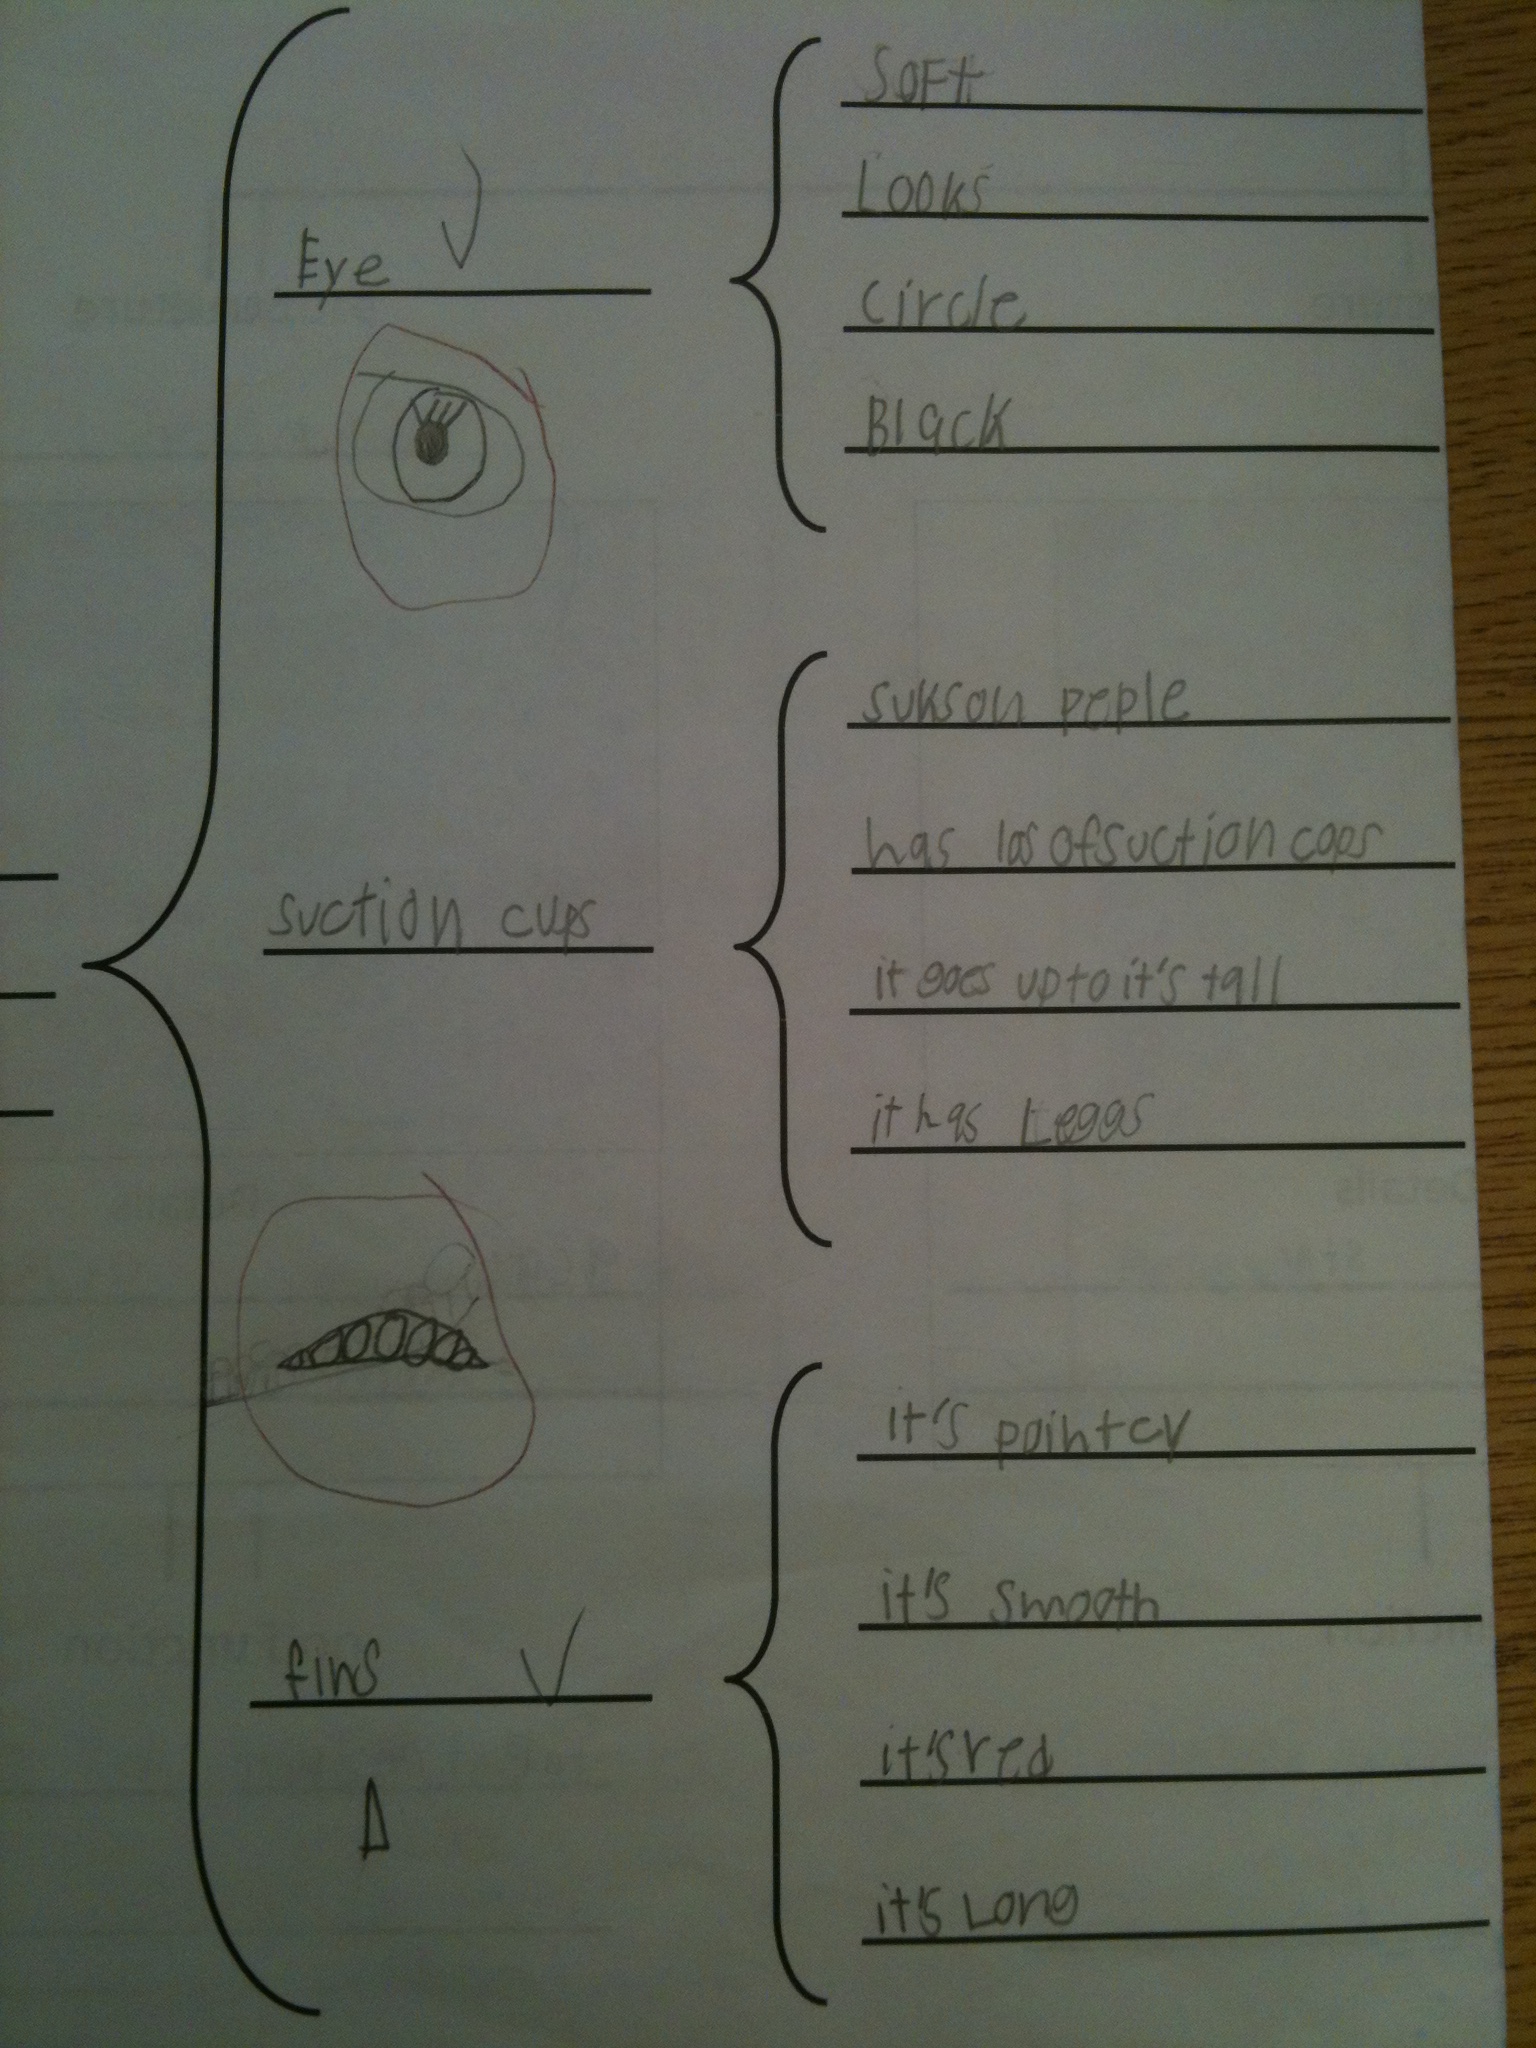 Eye
Soft
Looks
circle
Black
suction cups
sukson peple
has los of suction cops
it goes up to it's tall
it has Leggs
fins
it's pointcy
it's smooth
it's red
it's Long